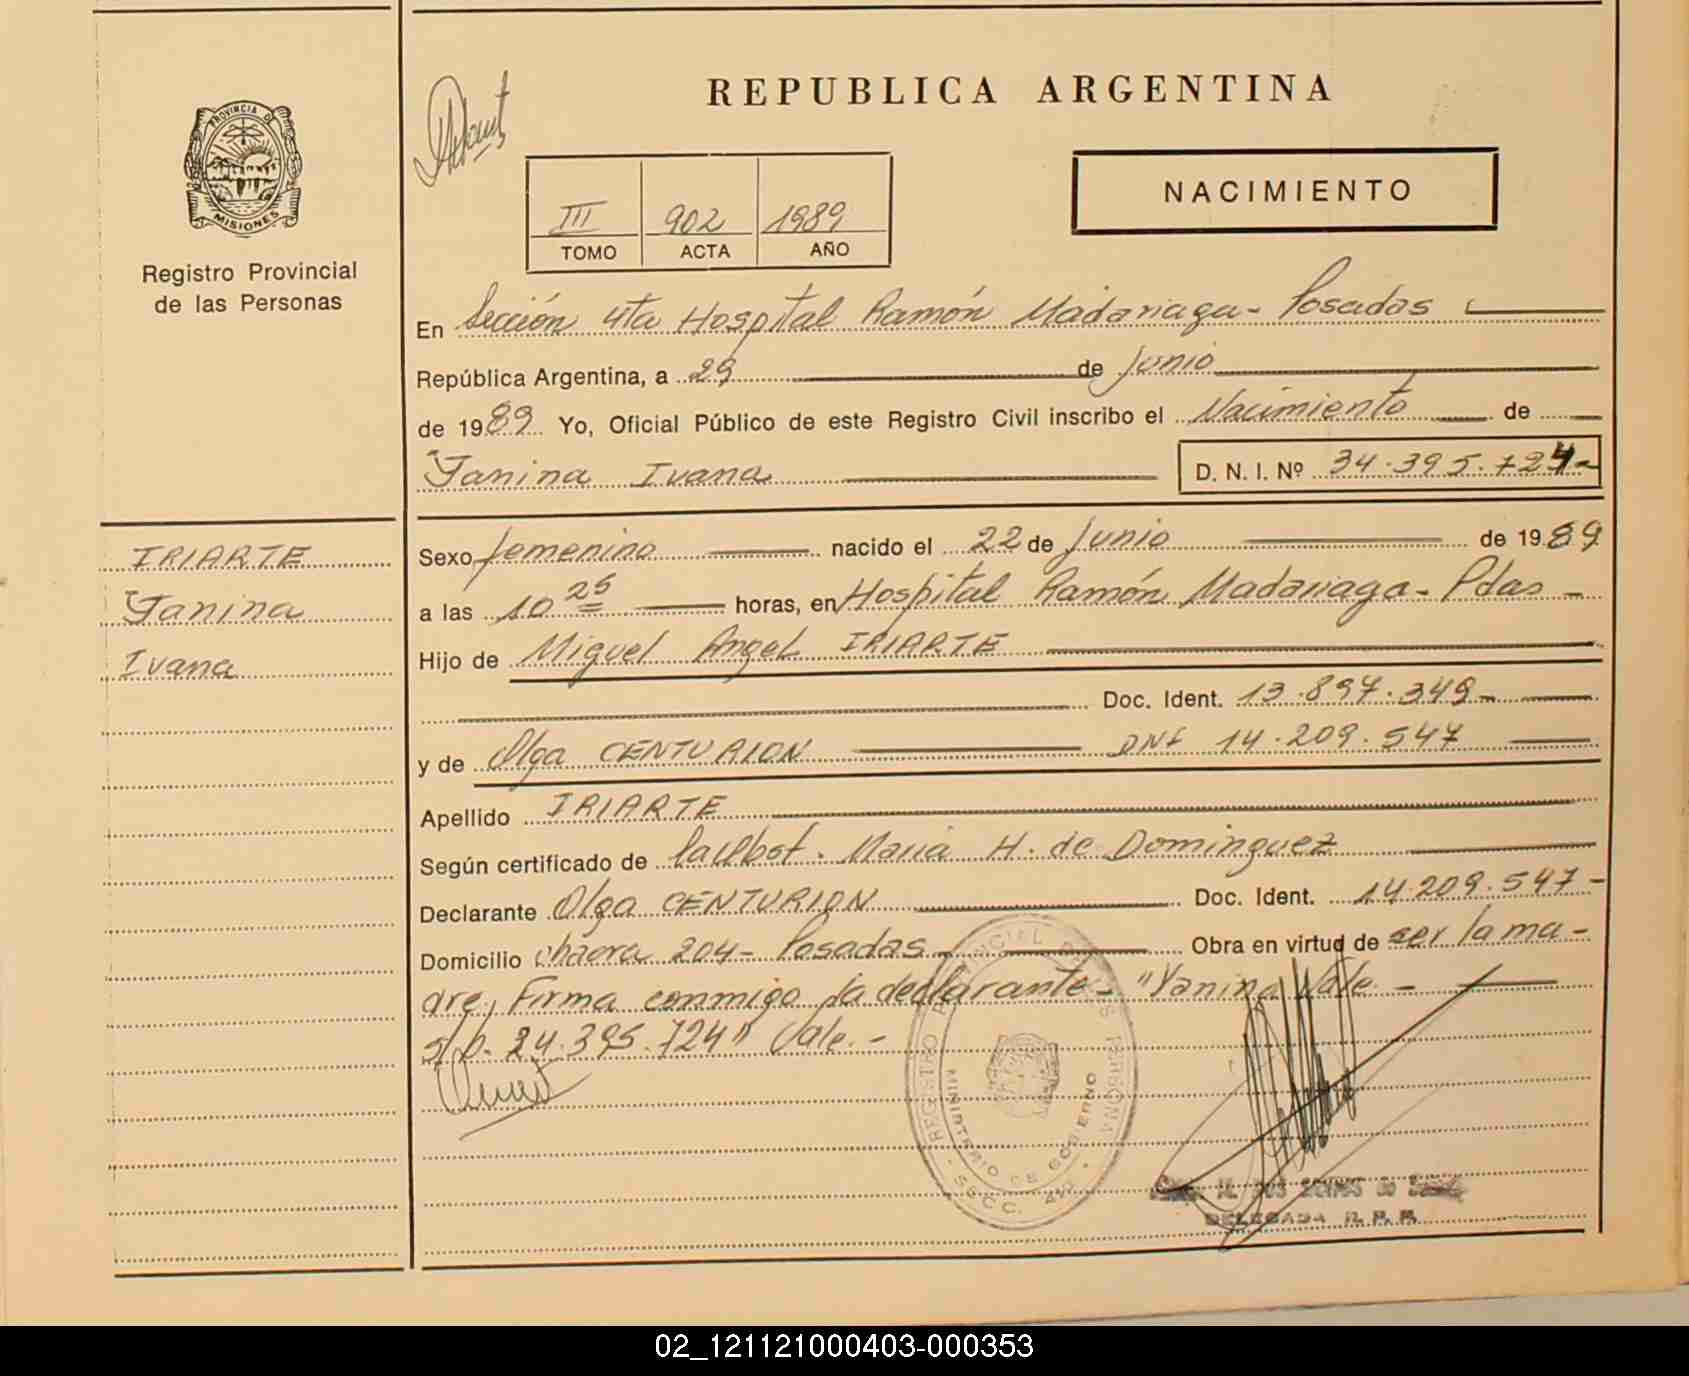 REPUBLICA ARGENTINA
PROVINCIA DE
MISIONES
Registro Provincial
de las Personas
III 902 1989
TOMO ACTA AÑO
NACIMIENTO
En Sección 4ta Hospital Ramón Madariaga - Posadas
República Argentina, a 29 de Junio
de 1989 Yo, Oficial Público de este Registro Civil inscribo el Nacimiento de
Yanina Ivana D. N. I. Nº 34.395.724-
IRIARTE
Yanina
Ivana
Sexo femenino nacido el 22 de Junio de 1989
a las 10 25 horas, en Hospital Ramón Madariaga - Pdas -
Hijo de Miguel Angel IRIARTE
Doc. Ident. 13.897.349-
y de Olga CENTURION DNI 14.209.547
Apellido IRIARTE
Según certificado de María H. de Dominguez
Declarante Olga CENTURION Doc. Ident. 14.209.547-
Domicilio chacra 204 - Posadas - Obra en virtud de ser la ma-
dre, Firma conmigo la declarante - "Yanina Vale -
34.395.724" Vale.-
REGISTRO PROVINCIAL DE LAS PERSONAS
MINISTERIO DE GOBIERNO
SECC. 4ta
DELEGADA R. P. P.
02_121121000403-000353